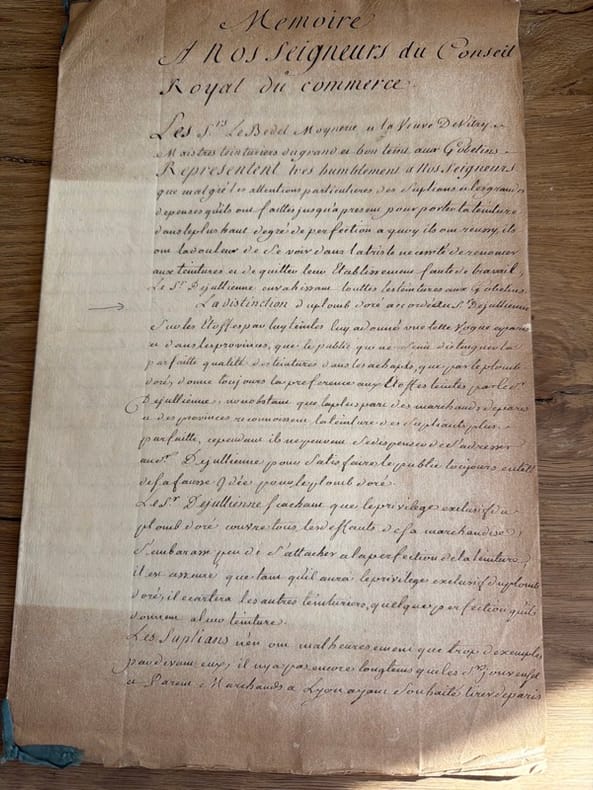 Memoire
A Nos Seigneurs du Conseil
Royal du commerce.
Les Srs Le Bedel Moynerie et la Veuve DeVitry
Maistres teinturiers du grand et bon teint aux Gobelins
Representent tres humblement a Nos Seigneurs
que malgré les attentions particulieres des Suplians et les grandes
depenses quils ont faittes jusqu'a present pour porter la teinture
dans le plus haut degré de perfection a quoy ils ont reussy, ils
ont la douleur de se voir dans la triste necessité de renoncer
aux teintures et de quitter leur Etablissement faute de travail,
Le Sr Dejullienne envahissant touttes les teintures aux Gobelins.
La distinction du plomb doré accordée au Sr Dejullienne
Sur les Etoffes par luy teintes luy a donné une telle Vogue a paris
et dans les provinces, que le public qui ne scait distinguer la
parfaitte qualité des teintures dans les achapts, que par le plomb
doré, donne toujours la preference aux Etoffes teintes par le Sr
Dejullienne, et nonobstant que la plus part des marchands de paris
et des provinces reconnoissent la teinture des Supliants plus
parfaitte, cependant ils ne peuvent se dispenser de s'adresser
au Sr Dejullienne pour satisfaire le public toujours entêté
de sa fausse Idée pour le plomb doré.
Le Sr Dejullienne scachant que le privilege exclusif du
plomb doré couvre tous les deffauts de sa marchandise,
S'embarasse peu de s'attacher a la perfection de la teinture,
il est asseuré que tant qu'il aura le privilege exclusif du plomb
doré, il ecartera les autres teinturiers, quelque perfection qu'ils
donnent a leur teinture.
Les Suplians n'en ont malheureusement que trop d'exemples
pardevant eux, il n'y a pas encore longtems que les Srs
et Parent Marchands a Lyon ayant souhaité tirer de paris